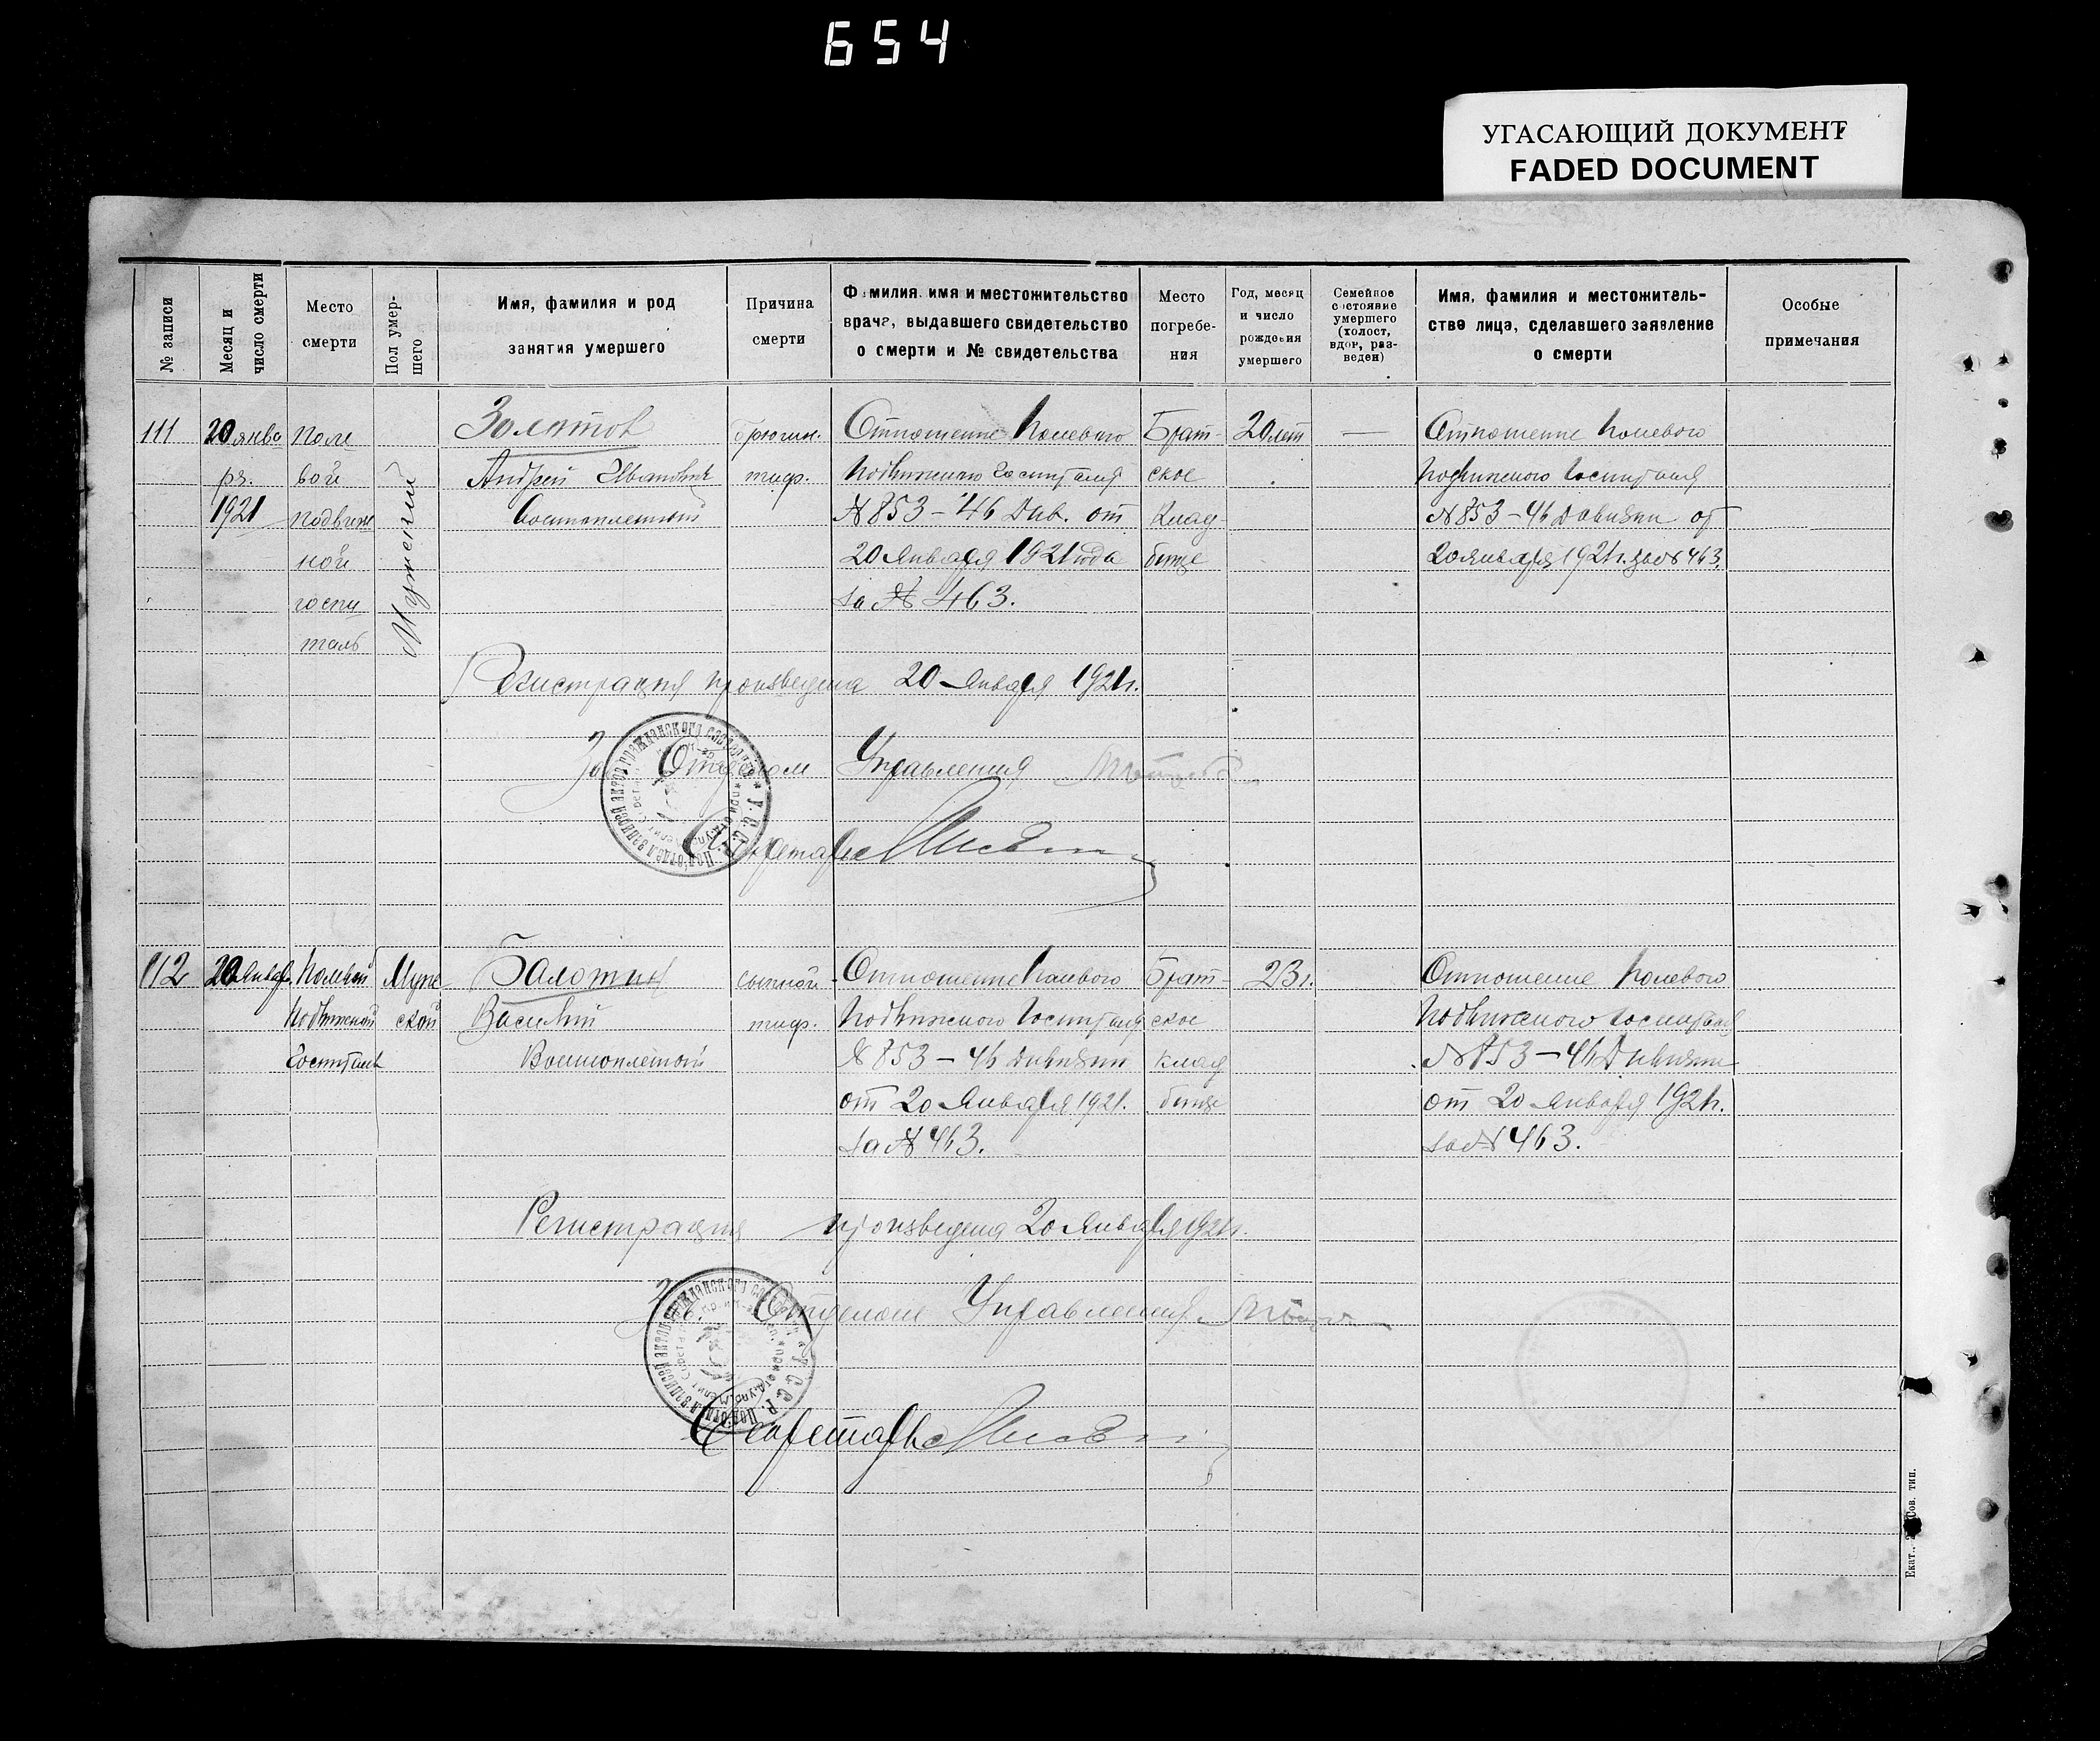 654
УГАСАЮЩИЙ ДОКУМЕНТ
FADED DOCUMENT
№ записи
Месяц и
число смерти
Место
смерти
Пол умер-
шего
Имя, фамилия и род
занятия умершего
Причина
смерти
Фамилия, имя и местожительство
врача, выдавшего свидетельство
о смерти и № свидетельства
Место
погребе-
ния
Год, месяц
и число
рождения
умершего
Семейное
состояние
умершего
(холост,
вдов, раз-
веден)
Имя, фамилия и местожитель-
ство лица, сделавшего заявление
о смерти
Особые
примечания
111
20 янва
ря.
1921
Поле
вой
подвиж
ной
госпи
таль
Мужской
Золотов
Андрей Иванович
Военнопленный
брюшн.
тиф.
Отношение Полевого
Подвижного Госпиталя
№ 853 – 46 Див. от
20 Января 1921 года
за № 463.
Брат-
ское
Клад-
бище
20 лет
—
Отношение Полевого
Подвижного Госпиталя
№ 853 – 46 Дивизии от
20 января 1921 г. за № 463.
Регистрация произведена 20 Января 1921 г.
Зав. Отделом Управления
Секретарь
112
20 Январ.
Полевой
Подвижной
Госпиталь
Муж
ской
Балотин
Василий
Военнопленой
сыпной
тиф.
Отношение Полевого
Подвижного Госпиталя
№ 853 – 46 Дивизии
от 20 Января 1921.
за № 463.
Брат-
ское
клад
бище
23 г.
Отношение Полевого
Подвижного Госпиталя
№ 853 – 46 Дивизии
от 20 Января 1921 г.
за № 463.
Регистрация произведена 20 Января 1921 г.
Зав. Отделом Управления
Секретарь
Екат., Сов. тип.